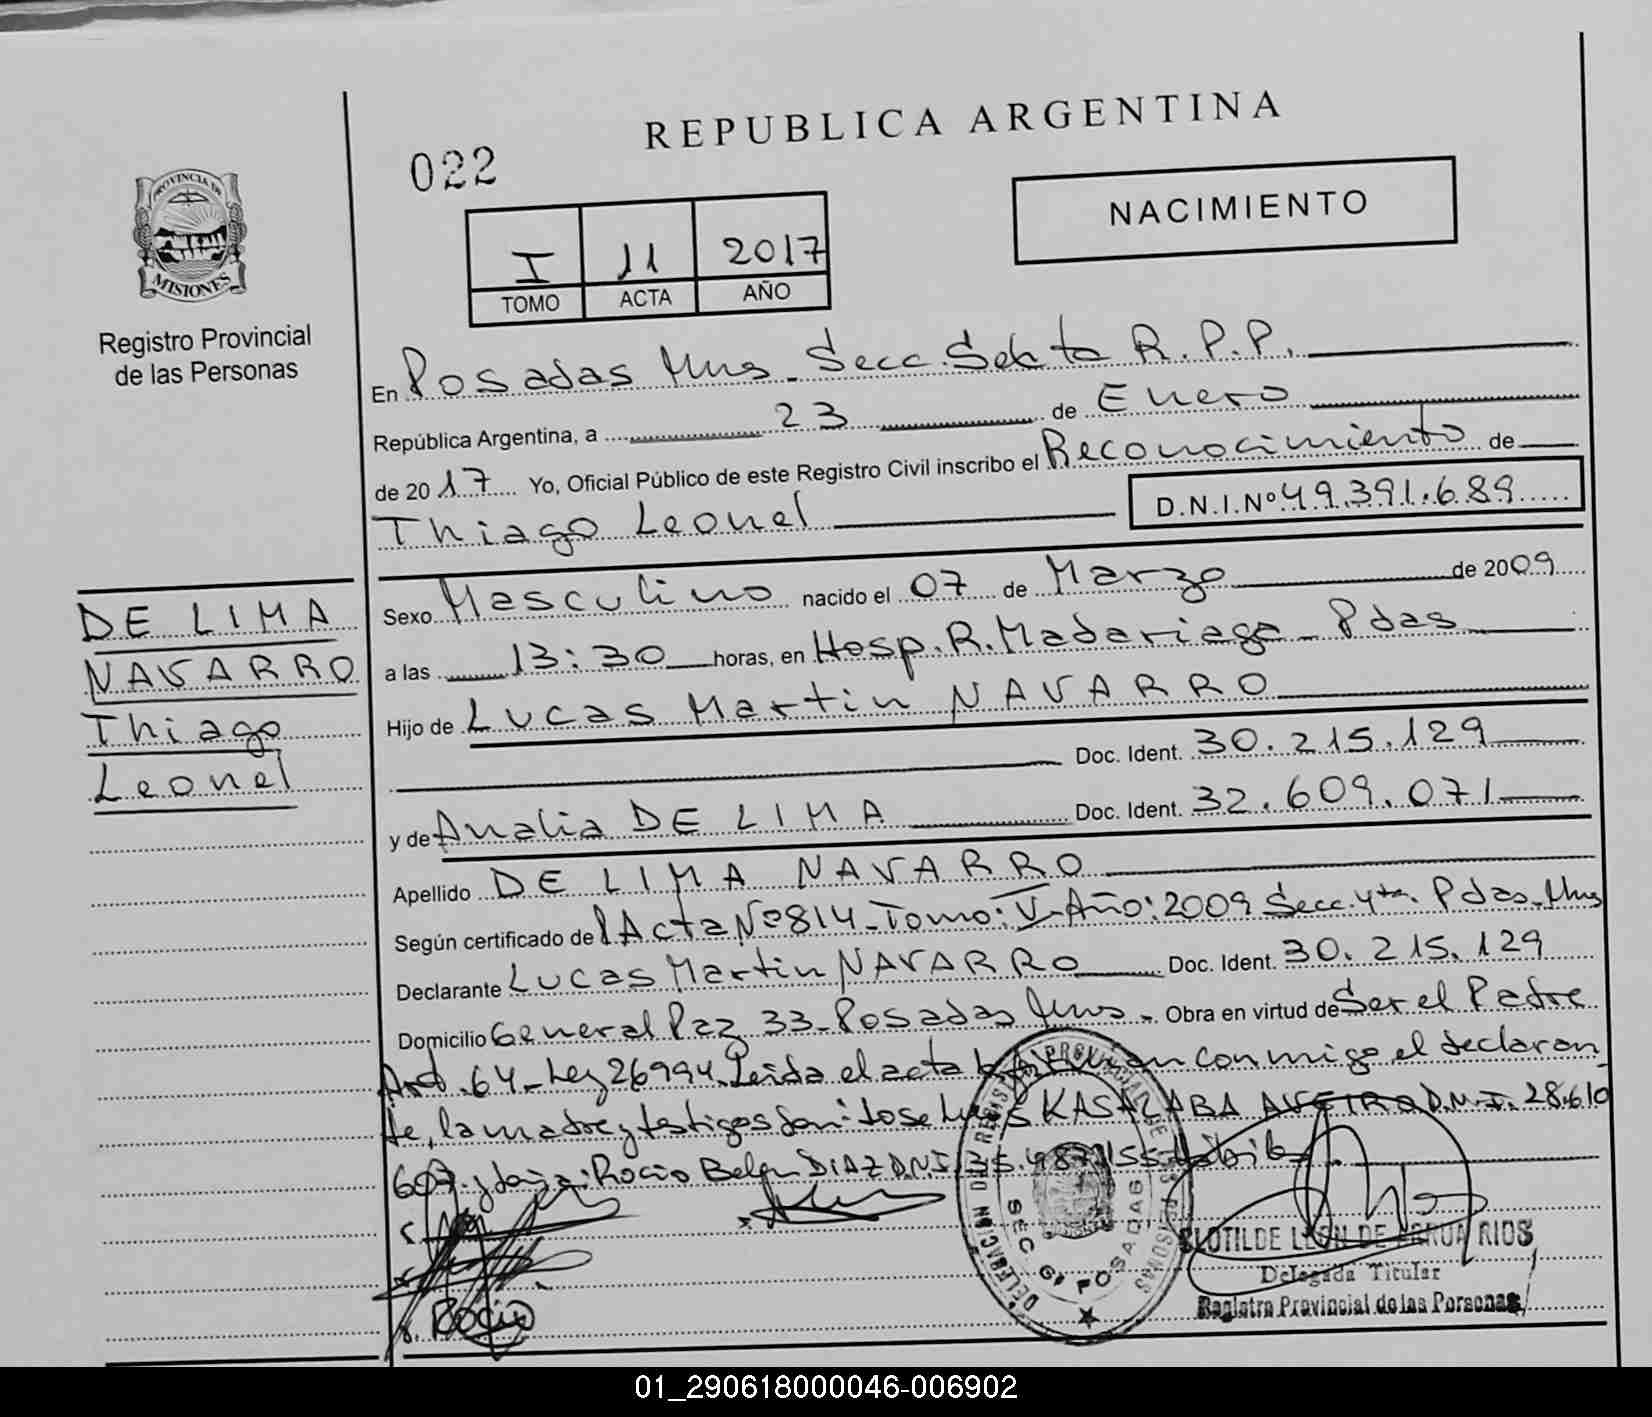 REPUBLICA ARGENTINA
022
NACIMIENTO
PROVINCIA DE
MISIONES
Registro Provincial
de las Personas
I 11 2017
TOMO ACTA AÑO
En Posadas Mnes. Secc. Sexta R.P.P.
República Argentina, a 23 de Enero
de 2017 Yo, Oficial Público de este Registro Civil inscribo el Reconocimiento de
Thiago Leonel D.N.I.Nº 49.391.689
DE LIMA
NAVARRO
Thiago
Leonel
Sexo Masculino nacido el 07 de Marzo de 2009
a las 13:30 horas, en Hosp. R. Madariaga - Pdas
Hijo de Lucas Martin NAVARRO
Doc. Ident. 30.215.129
y de Analia DE LIMA Doc. Ident. 32.609.071
Apellido DE LIMA NAVARRO
Según certificado del Acta Nº 814 - Tomo: V - Año: 2009 Secc. 4ta. Pdas. Mnes
Declarante Lucas Martin NAVARRO Doc. Ident. 30.215.129
Domicilio General Paz 33 - Posadas Mnes - Obra en virtud de Ser el Padre
Art. 64 - Ley 26994. Leida el acta la conmigo el declaran
te, la madre y testigos Son: Jose Luis KASALABA AVEIRO D.N.I. 28.610
607 y Rocio Belen DIAZ D.N.I. 35.487.155
Rocio
DELEGACION DEL REGISTRO PROVINCIAL DE LAS PERSONAS
SEC 6ª POSADAS
CLOTILDE LEON DE ARRUA RIOS
Delegada Titular
Registro Provincial de las Personas
01_290618000046-006902